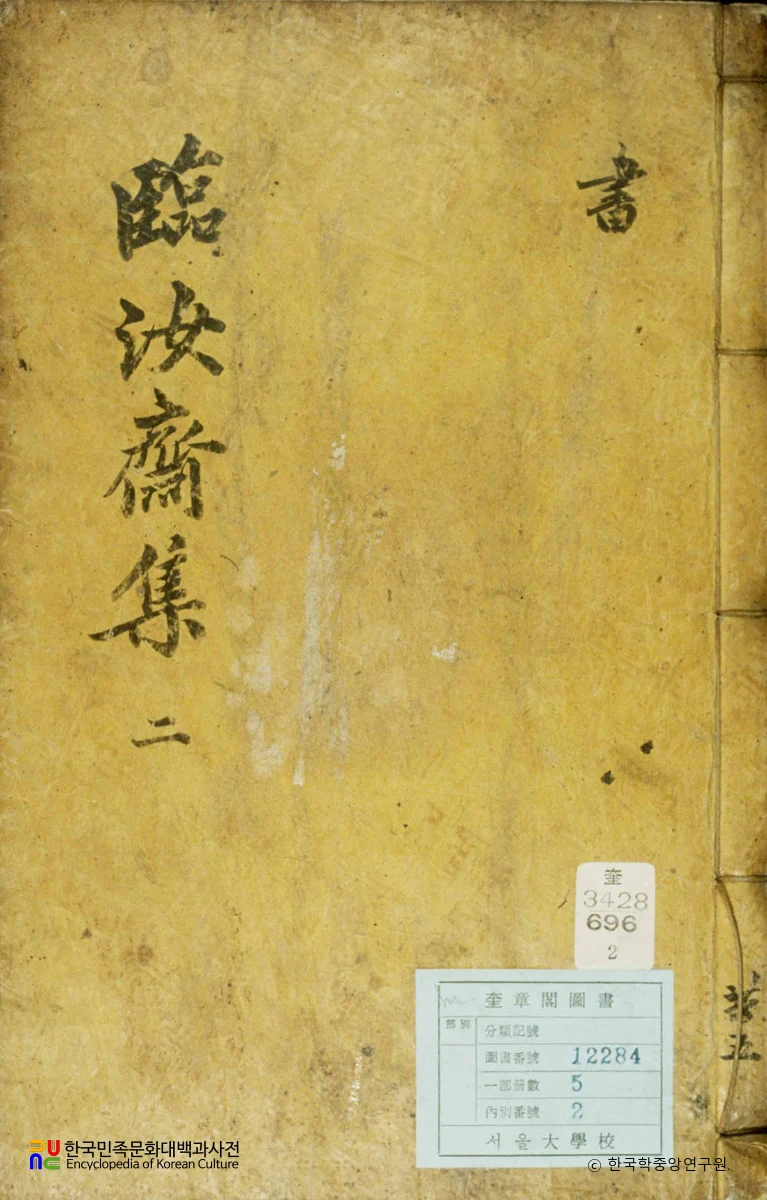 書
臨汝齋集 二
奎
3428
696
2
奎章閣圖書
部別
分類記號
圖書番號 12284
一部册數 5
內別番號 2
서울大學校
共五
한국민족문화대백과사전
Encyclopedia of Korean Culture
ⓒ 한국학중앙연구원.